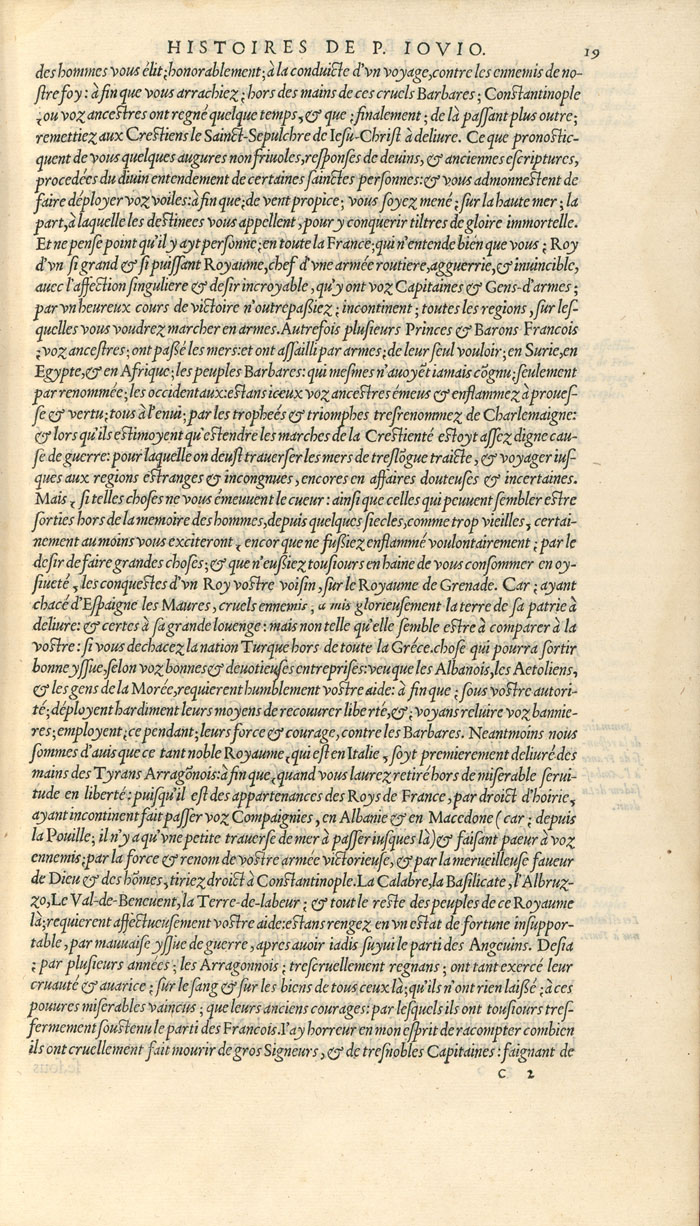 HISTOIRES DE P. IOVIO. 19
des hommes vous élit ; honorablement ; à la conduicte d'vn voyage, contre les ennemis de no-
stre foy : à fin que vous arrachiez ; hors des mains de ces cruels Barbares ; Constantinople
; ou voz ancestres ont regné quelque temps, & que ; finalement ; de là passant plus outre ;
remettiez aux Crestiens le Sainct-Sepulchre de Iesu-Christ à deliure. Ce que pronostic-
quent de vous quelques augures non friuoles, responses de deuins, & anciennes escriptures,
procedées du diuin entendement de certaines sainctes personnes : & vous admonnestent de
faire déployer voz voiles : à fin que ; de vent propice ; vous soyez mené ; sur la haute mer ; la
part, à laquelle les destinees vous appellent, pour y conquerir tiltres de gloire immortelle.
Et ne pense point qu'il y ayt personne ; en toute la France ; qui n'entende bien que vous ; Roy
d'vn si grand & si puissant Royaume, chef d'vne armée routiere, agguerrie, & inuincible,
auec l'affection singuliere & desir incroyable, qu'y ont voz Capitaines & Gens-d'armes ;
par vn heureux cours de victoire n'outrepaßiez ; incontinent ; toutes les regions, sur les-
quelles vous voudrez marcher en armes. Autrefois plusieurs Princes & Barons Francois
; voz ancestres ; ont paßé les mers : et ont assailli par armes ; de leur seul vouloir ; en Surie, en
Egypte, & en Afrique ; les peuples Barbares : qui mesmes n'auoyēt iamais cõgnu ; seulement
par renommée ; les occidentaux : estans iceux voz ancestres émeus & enflammez à prouës-
se & vertu ; tous à l'enui ; par les tropheés & triomphes tresrenommez de Charlemaigne :
& lors qu'ils estimoyent qu'estendre les marches de la Crestienté estoyt assez digne cau-
se de guerre : pour laquelle on deust trauerser les mers de treslõgue traicte, & voyager ius-
ques aux regions estranges & incongnues, encores en affaires douteuses & incertaines.
Mais, si telles choses ne vous émeuuent le cueur : ainsi que celles qui peuuent sembler estre
sorties hors de la memoire des hommes, depuis quelques siecles, comme trop vieilles, certai-
nement au moins vous exciteront ; encor que ne fußiez enflammé voulontairement ; par le
desir de faire grandes choses ; & que n'eußiez tousiours en haine de vous consommer en oy-
siueté, les conquestes d'vn Roy vostre voisin, sur le Royaume de Grenade. Car ; ayant
chacé d'Espaigne les Maures, cruels ennemis, a mis glorieusement la terre de sa patrie à
deliure : & certes à sa grande louenge : mais non telle qu'elle semble estre à comparer à la
vostre : si vous dechacez la nation Turque hors de toute la Gréce. chose qui pourra sortir
bonne yssue, selon voz bonnes & deuotieuses entreprises : veu que les Albanois, les Aetoliens,
& les gens de la Morée, requierent humblement vostre aide : à fin que ; sous vostre autori-
té ; déployent hardiment leurs moyens de recouurer liberté, & ; voyans reluire voz bannie-
res ; employent ; ce pendant ; leurs force & courage, contre les Barbares. Neantmoins nous
sommes d'auis que ce tant noble Royaume, qui est en Italie, soyt premierement deliuré des
mains des Tyrans Arragõnois : à fin que, quand vous l'aurez retiré hors de miserable serui-
tude en liberté : puisqu'il est des appartenances des Roys de France, par droict d'hoirie,
ayant incontinent fait passer voz Compaignies, en Albanie & en Macedone ( car ; depuis
la Pouille ; il n'y a qu'vne petite trauerse de mer à passer iusques là ) & faisant paeur à voz
ennemis ; par la force & renom de vostre armée victorieuse, & par la merueilleuse faueur
de Dieu & des hõmes, tiriez droict à Constantinople. La Calabre, la Basilicate, l'Albruz-
zo, Le Val-de-Beneuent, la Terre-de-labeur ; & tout le reste des peuples de ce Royaume
là ; requierent affectueusement vostre aide : estans rengez en vn estat de fortune insuppor-
table, par mauuaise yssue de guerre, apres auoir iadis suyui le parti des Angeuins. Desia
; par plusieurs années ; les Arragonnois ; trescruellement regnans ; ont tant exercé leur
cruauté & auarice ; sur le sang & sur les biens de tous ceux là ; qu'ils n'ont rien laißé ; à ces
pouures miserables vaincus ; que leurs anciens courages : par lesquels ils ont tousiours tres-
fermement soustenu le parti des Francois. I'ay horreur en mon esprit de racompter combien
ils ont cruellement fait mourir de gros Signeurs, & de tresnobles Capitaines : faignant de
C 2